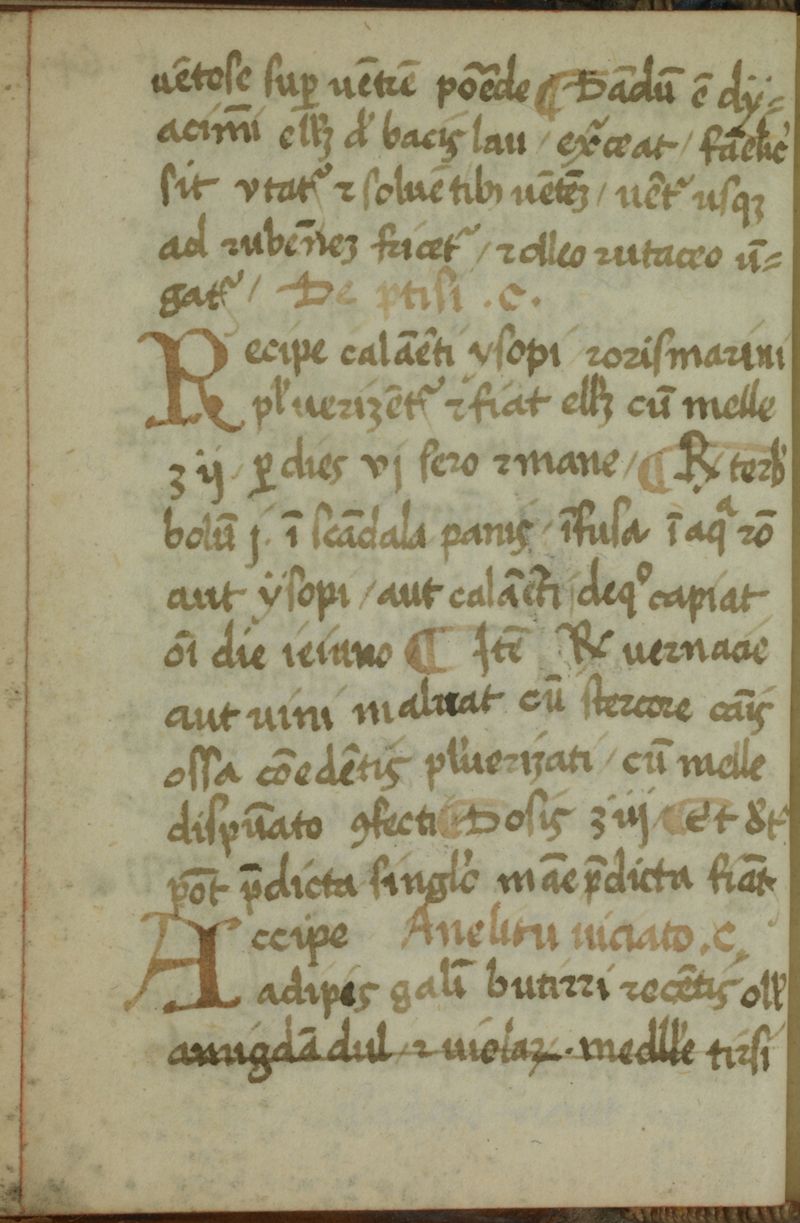 uẽtose sup uẽtrẽ põẽde ¶ Dãdũ ẽ dÿ=
acimĩ ell'ꝫ d' bacis lau / exꝰceat /
sit vtatꝰ ⁊ soluẽtibꝰ uẽtẽꝫ / uẽtꝰ usqꝫ
ad rubẽneꝫ fricetꝰ / ⁊ olleo rutaceo ũ=
gatꝰ / De ptisi .c.
Recipe calãẽti ysopi rorismarini
pl'uerizẽtꝰ ⁊ fiat ell'ꝫ cũ melle
ʒ ij ꝑ dies vj sero ⁊ mane / ¶ ℞ terb'
bolũ j. ĩ scãdala panis / ĩfusa ĩ aqª rõ
aut ÿsopi / aut calãẽti / deqº capiat
oĩ die ieiuno ¶ Itẽ ℞ uernacie
aut uini maluat cũ stercore cãis
ossa cõedẽtis pl'uerizati / cũ melle
dispũato ꝯfecti ¶ Dosis ʒ iij / ¶ Et
põt p̃dicta singl'o mãe p̃dicta fiãt
Accipe Anelitu uiciato .c.
adipis galĩ butirri recẽtis oll'
amigdã dul / ⁊ uiolaꝝ . medll'e tirsi